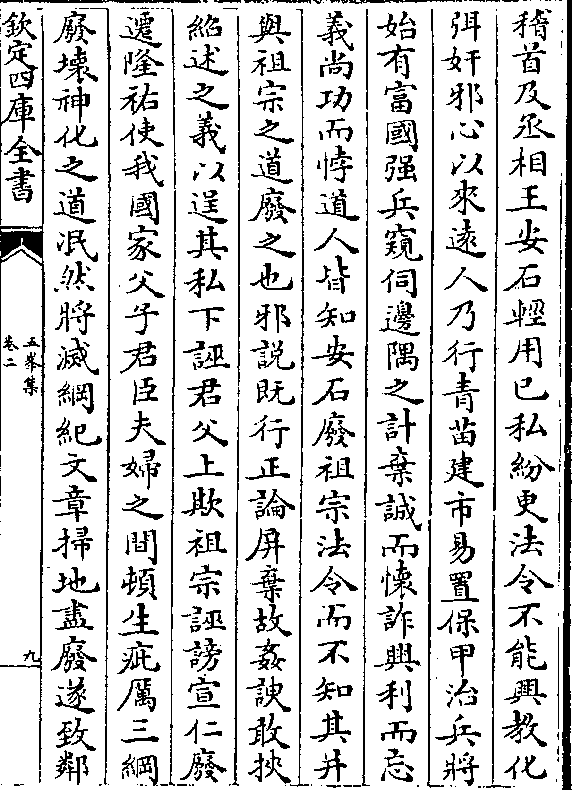 稽首及丞相王安石輕用已私紛更法令不能興教化
弭奸邪心以來遠人乃行青苗建市易置保甲治兵將
始有富國强兵窺伺邊隅之計棄誠而懐詐興利而忘
義尚功而悖道人皆知安石廢祖宗法令而不知其并
與祖宗之道廢之也邪說既行正論屏棄故姦諛敢挾
紹述之義以逞其私下誣君父上欺祖宗誣謗宣仁廢
遷隆祐使我國家父子君臣夫婦之間頓生疵厲三綱
廢壞神化之道泯然將滅綱紀文章掃地盡廢遂致鄰
欽定四庫全書
五峯集
卷二
九